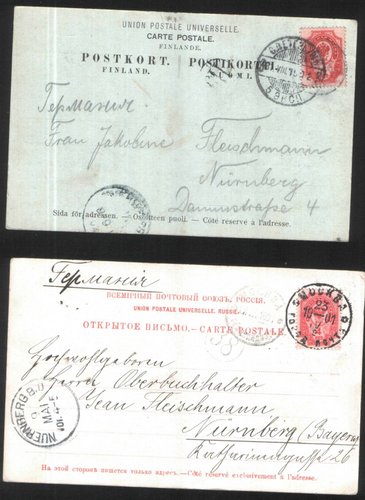 UNION POSTALE UNIVERSELLE.
CARTE POSTALE.
FINLANDE.
POSTKORT. POSTIKORTTI.
FINLAND.
Германия
Frau Jakobine Fleischmann
Nürnberg
Dammstrasse 4
Sida för adressen. — Osoitteen puoli. — Côté réservé à l'adresse.
Германія
ВСЕМІРНЫЙ ПОЧТОВЫЙ СОЮЗЪ. РОССІЯ.
UNION POSTALE UNIVERSELLE. RUSSIE.
ОТКРЫТОЕ ПИСЬМО.—CARTE POSTALE.
МОСКВА
23
10 01
Hochwohlgeboren
Herrn Oberbuchhalter
Jean Fleischmann
Nürnberg (Bayern)
26
NUERNBERG
MAI
На этой сторонѣ пишется только адресъ.—Côté réservé exclusivement à l'adresse.